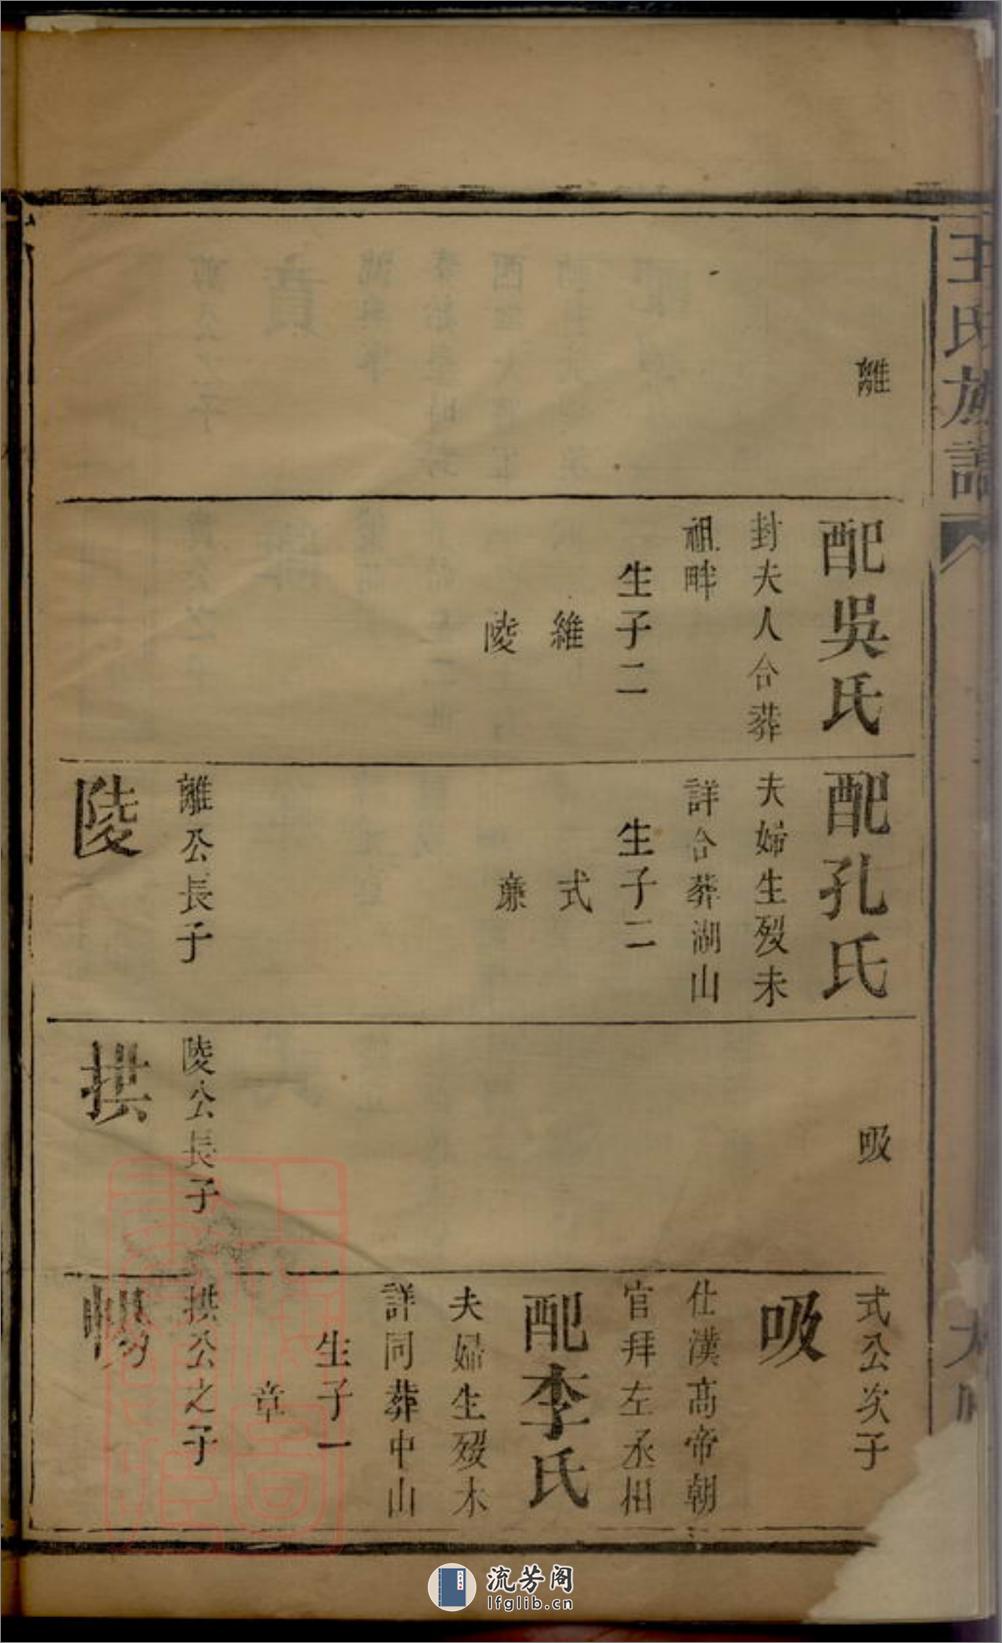 王氏族譜
離
配吳氏
封夫人合葬
祖畔
生子二
維
陵
配孔氏
夫婦生歿未
詳合葬湖山
生子二
式
亷
離公長子
陵
吸
陵公長子
拱
式公次子
吸
仕漢高帝朝
官拜左丞相
配李氏
夫婦生歿未
詳同葬中山
生子一
章
拱公之子
流芳阁
lfglib.cn